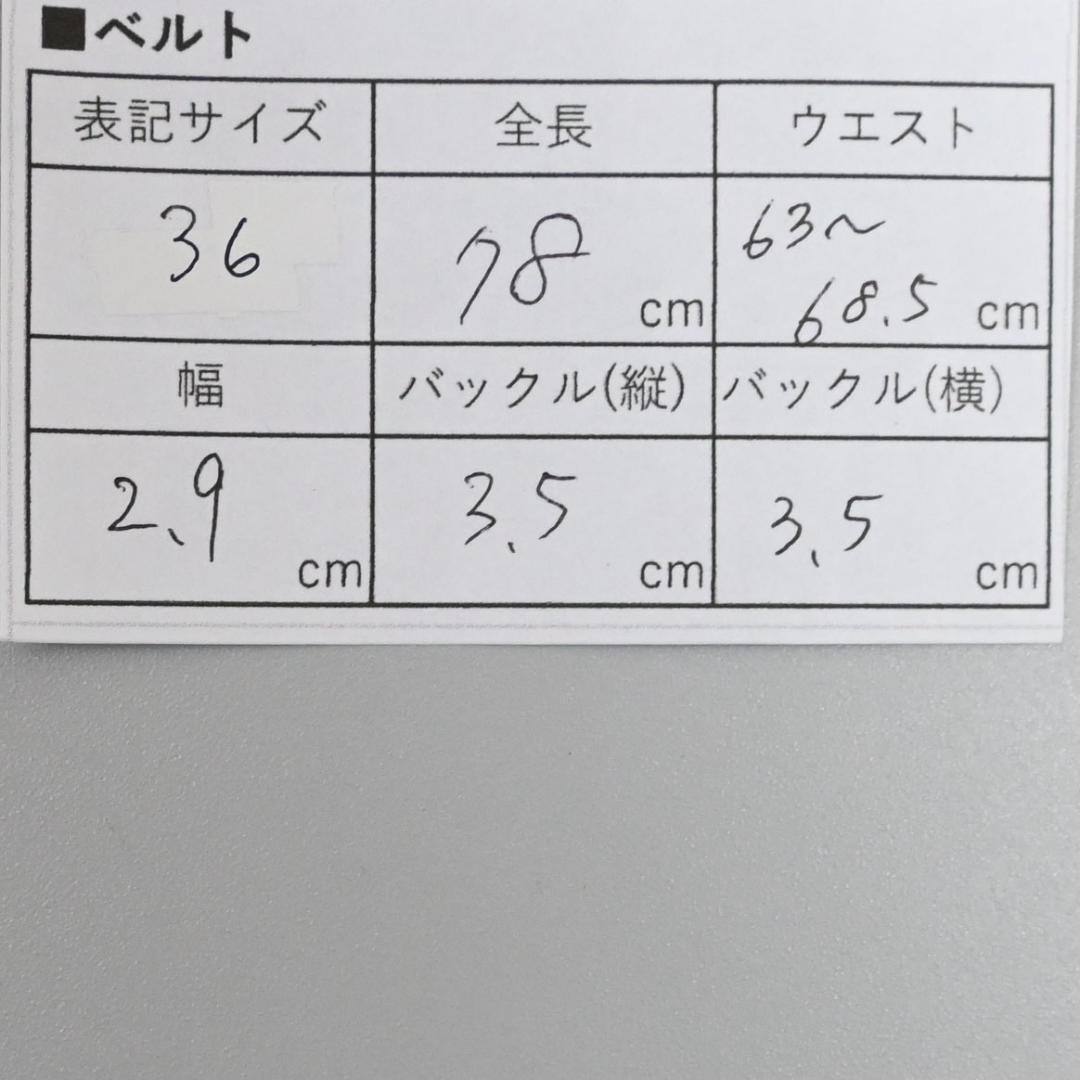 ■ベルト
表記サイズ 全長 ウエスト
36 78 cm 63〜
68.5 cm
幅 バックル(縦) バックル(横)
2.9 cm 3.5 cm 3.5 cm